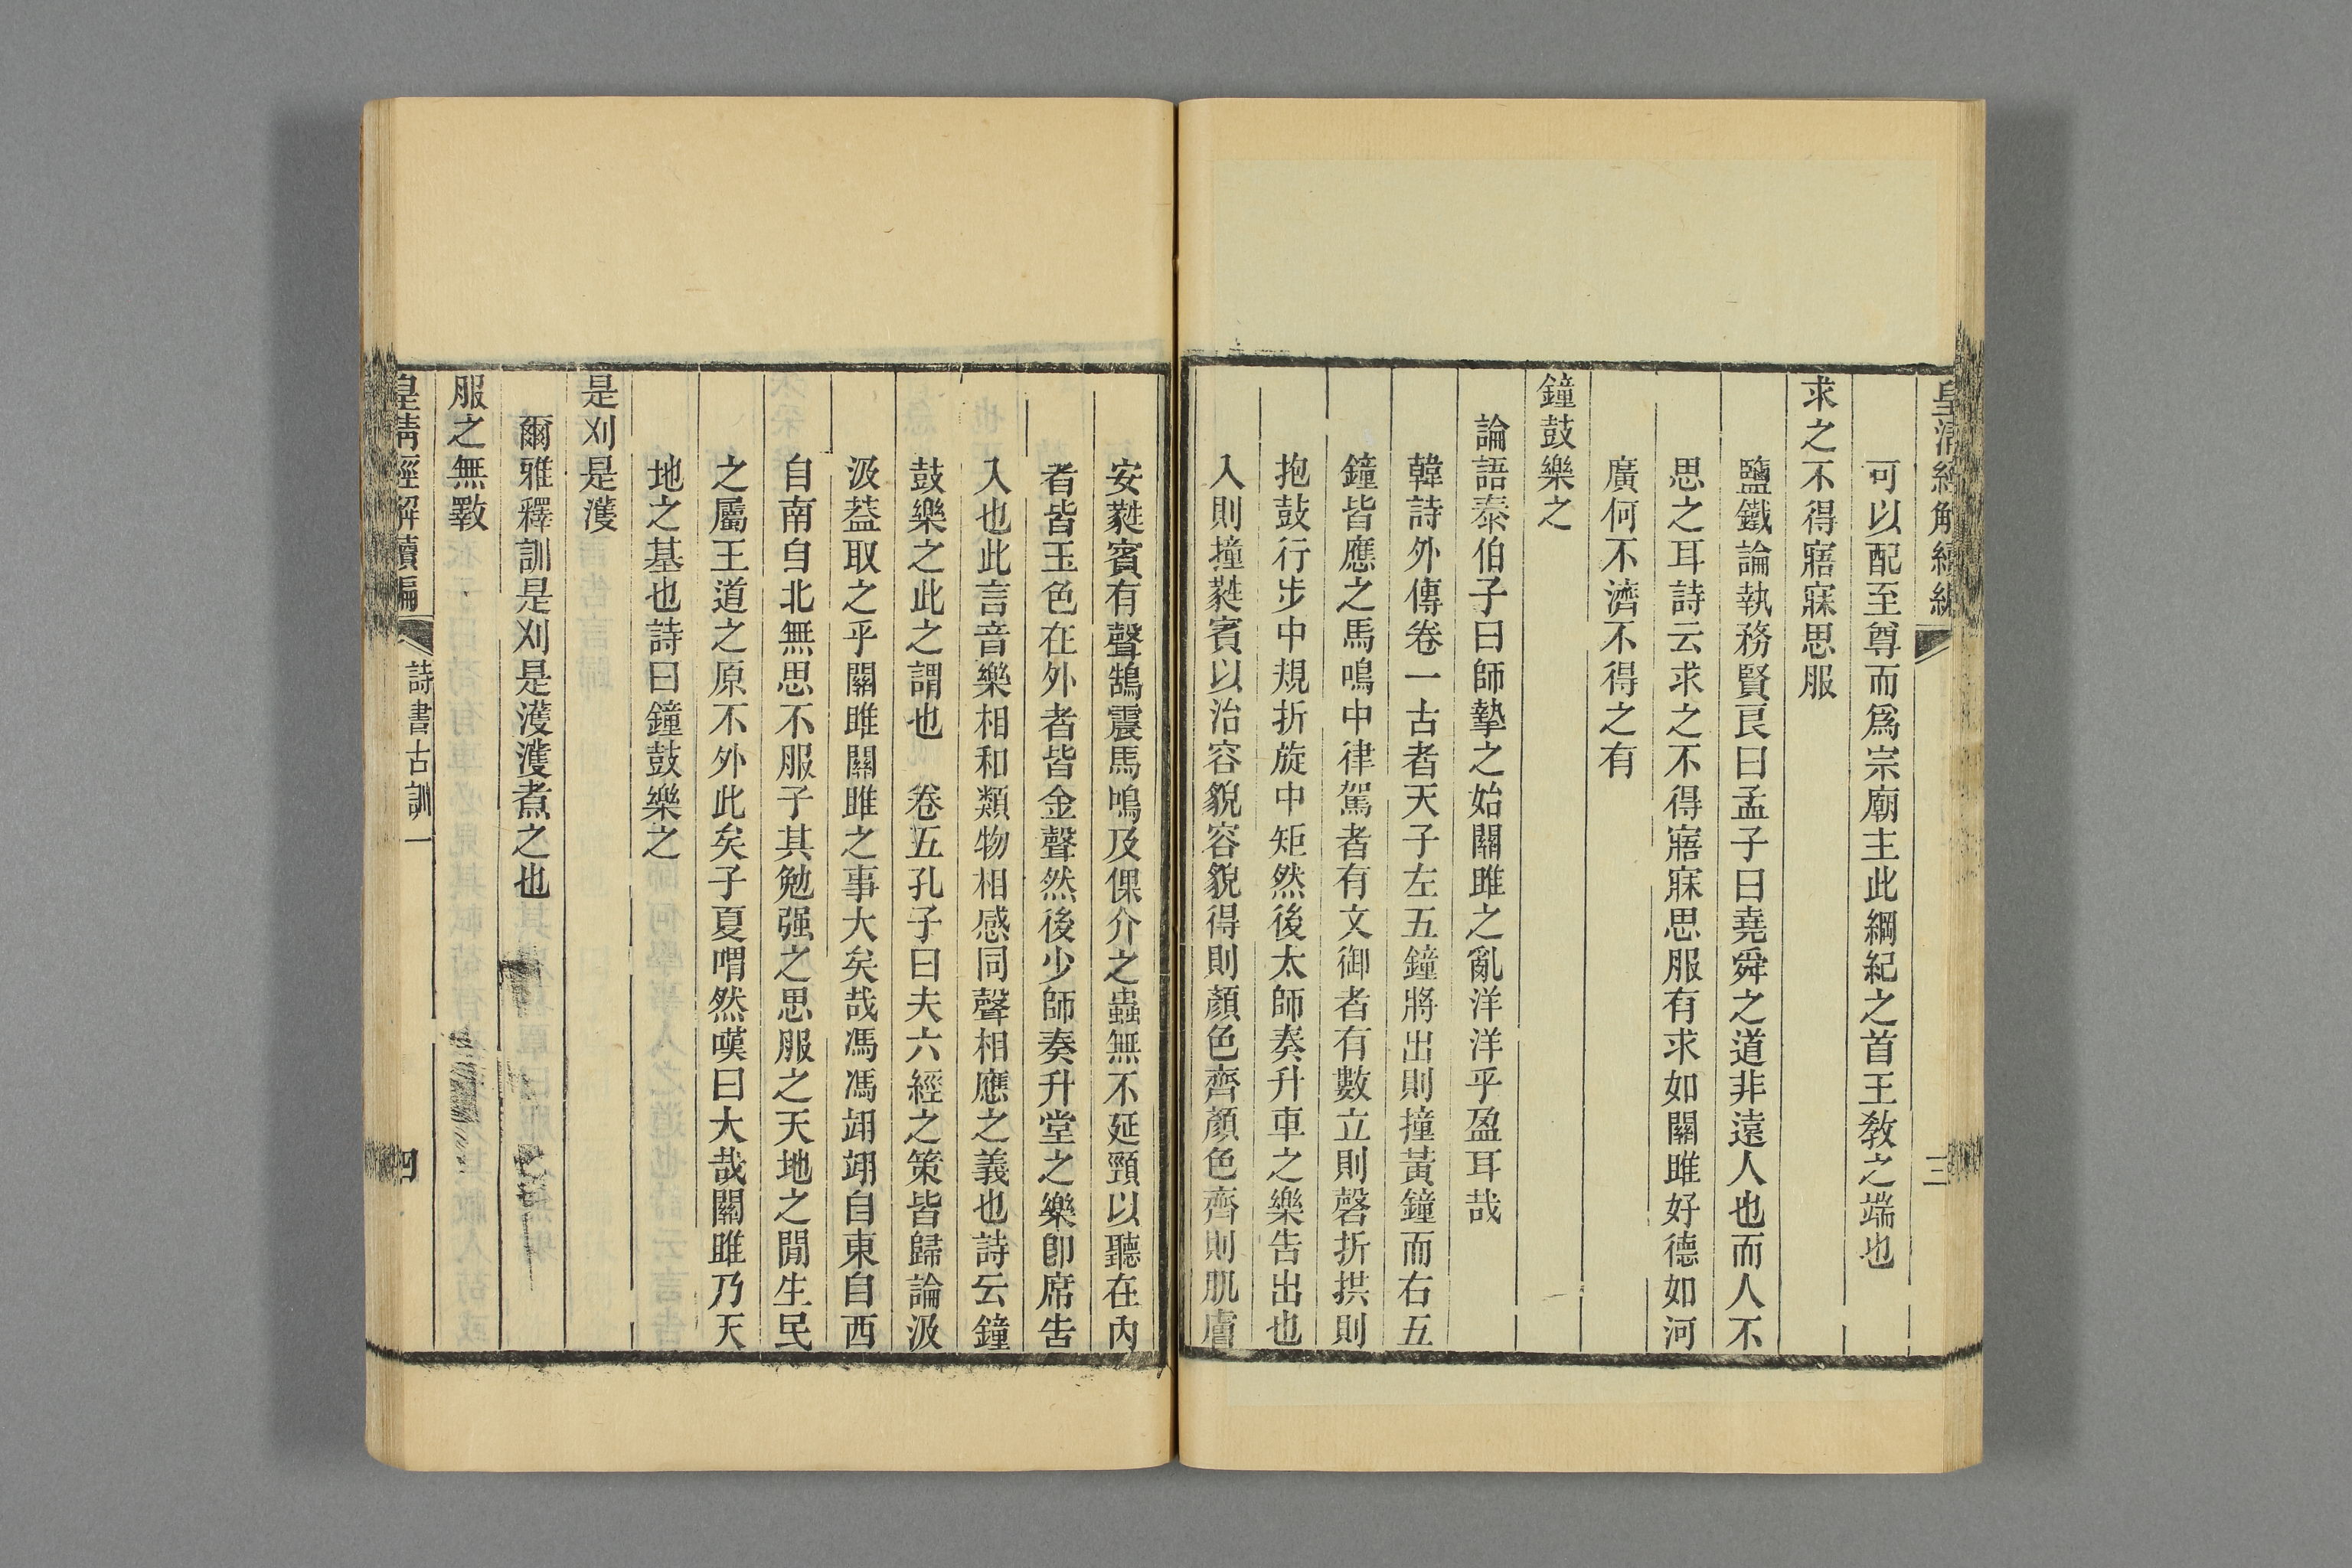 皇清經解續編
三
可以配至尊而爲宗廟主此綱紀之首王敎之端也
求之不得寤寐思服
鹽鐵論執務賢良曰孟子曰堯舜之道非遠人也而人不
思之耳詩云求之不得寤寐思服有求如關雎好德如河
廣何不濟不得之有
鐘鼓樂之
論語泰伯子曰師摯之始關雎之亂洋洋乎盈耳哉
韓詩外傳卷一古者天子左五鐘將出則撞黃鐘而右五
鐘皆應之馬鳴中律駕者有文御者有數立則磬折拱則
抱鼓行步中規折旋中矩然後太師奏升車之樂告出也
入則撞蕤賓以治容貌容貌得則顏色齊顏色齊則肌膚
安蕤賓有聲鵠震馬鳴及倮介之蟲無不延頸以聽在內
者皆玉色在外者皆金聲然後少師奏升堂之樂卽席告
入也此言音樂相和類物相感同聲相應之義也詩云鐘
鼓樂之此之謂也　卷五孔子曰夫六經之策皆歸論汲
汲葢取之乎關雎關雎之事大矣哉馮馮翊翊自東自西
自南自北無思不服子其勉强之思服之天地之閒生民
之屬王道之原不外此矣子夏喟然嘆曰大哉關雎乃天
地之基也詩曰鐘鼓樂之
是刈是濩
爾雅釋訓是刈是濩濩煮之也
服之無斁
皇清經解續編
詩書古訓一
四